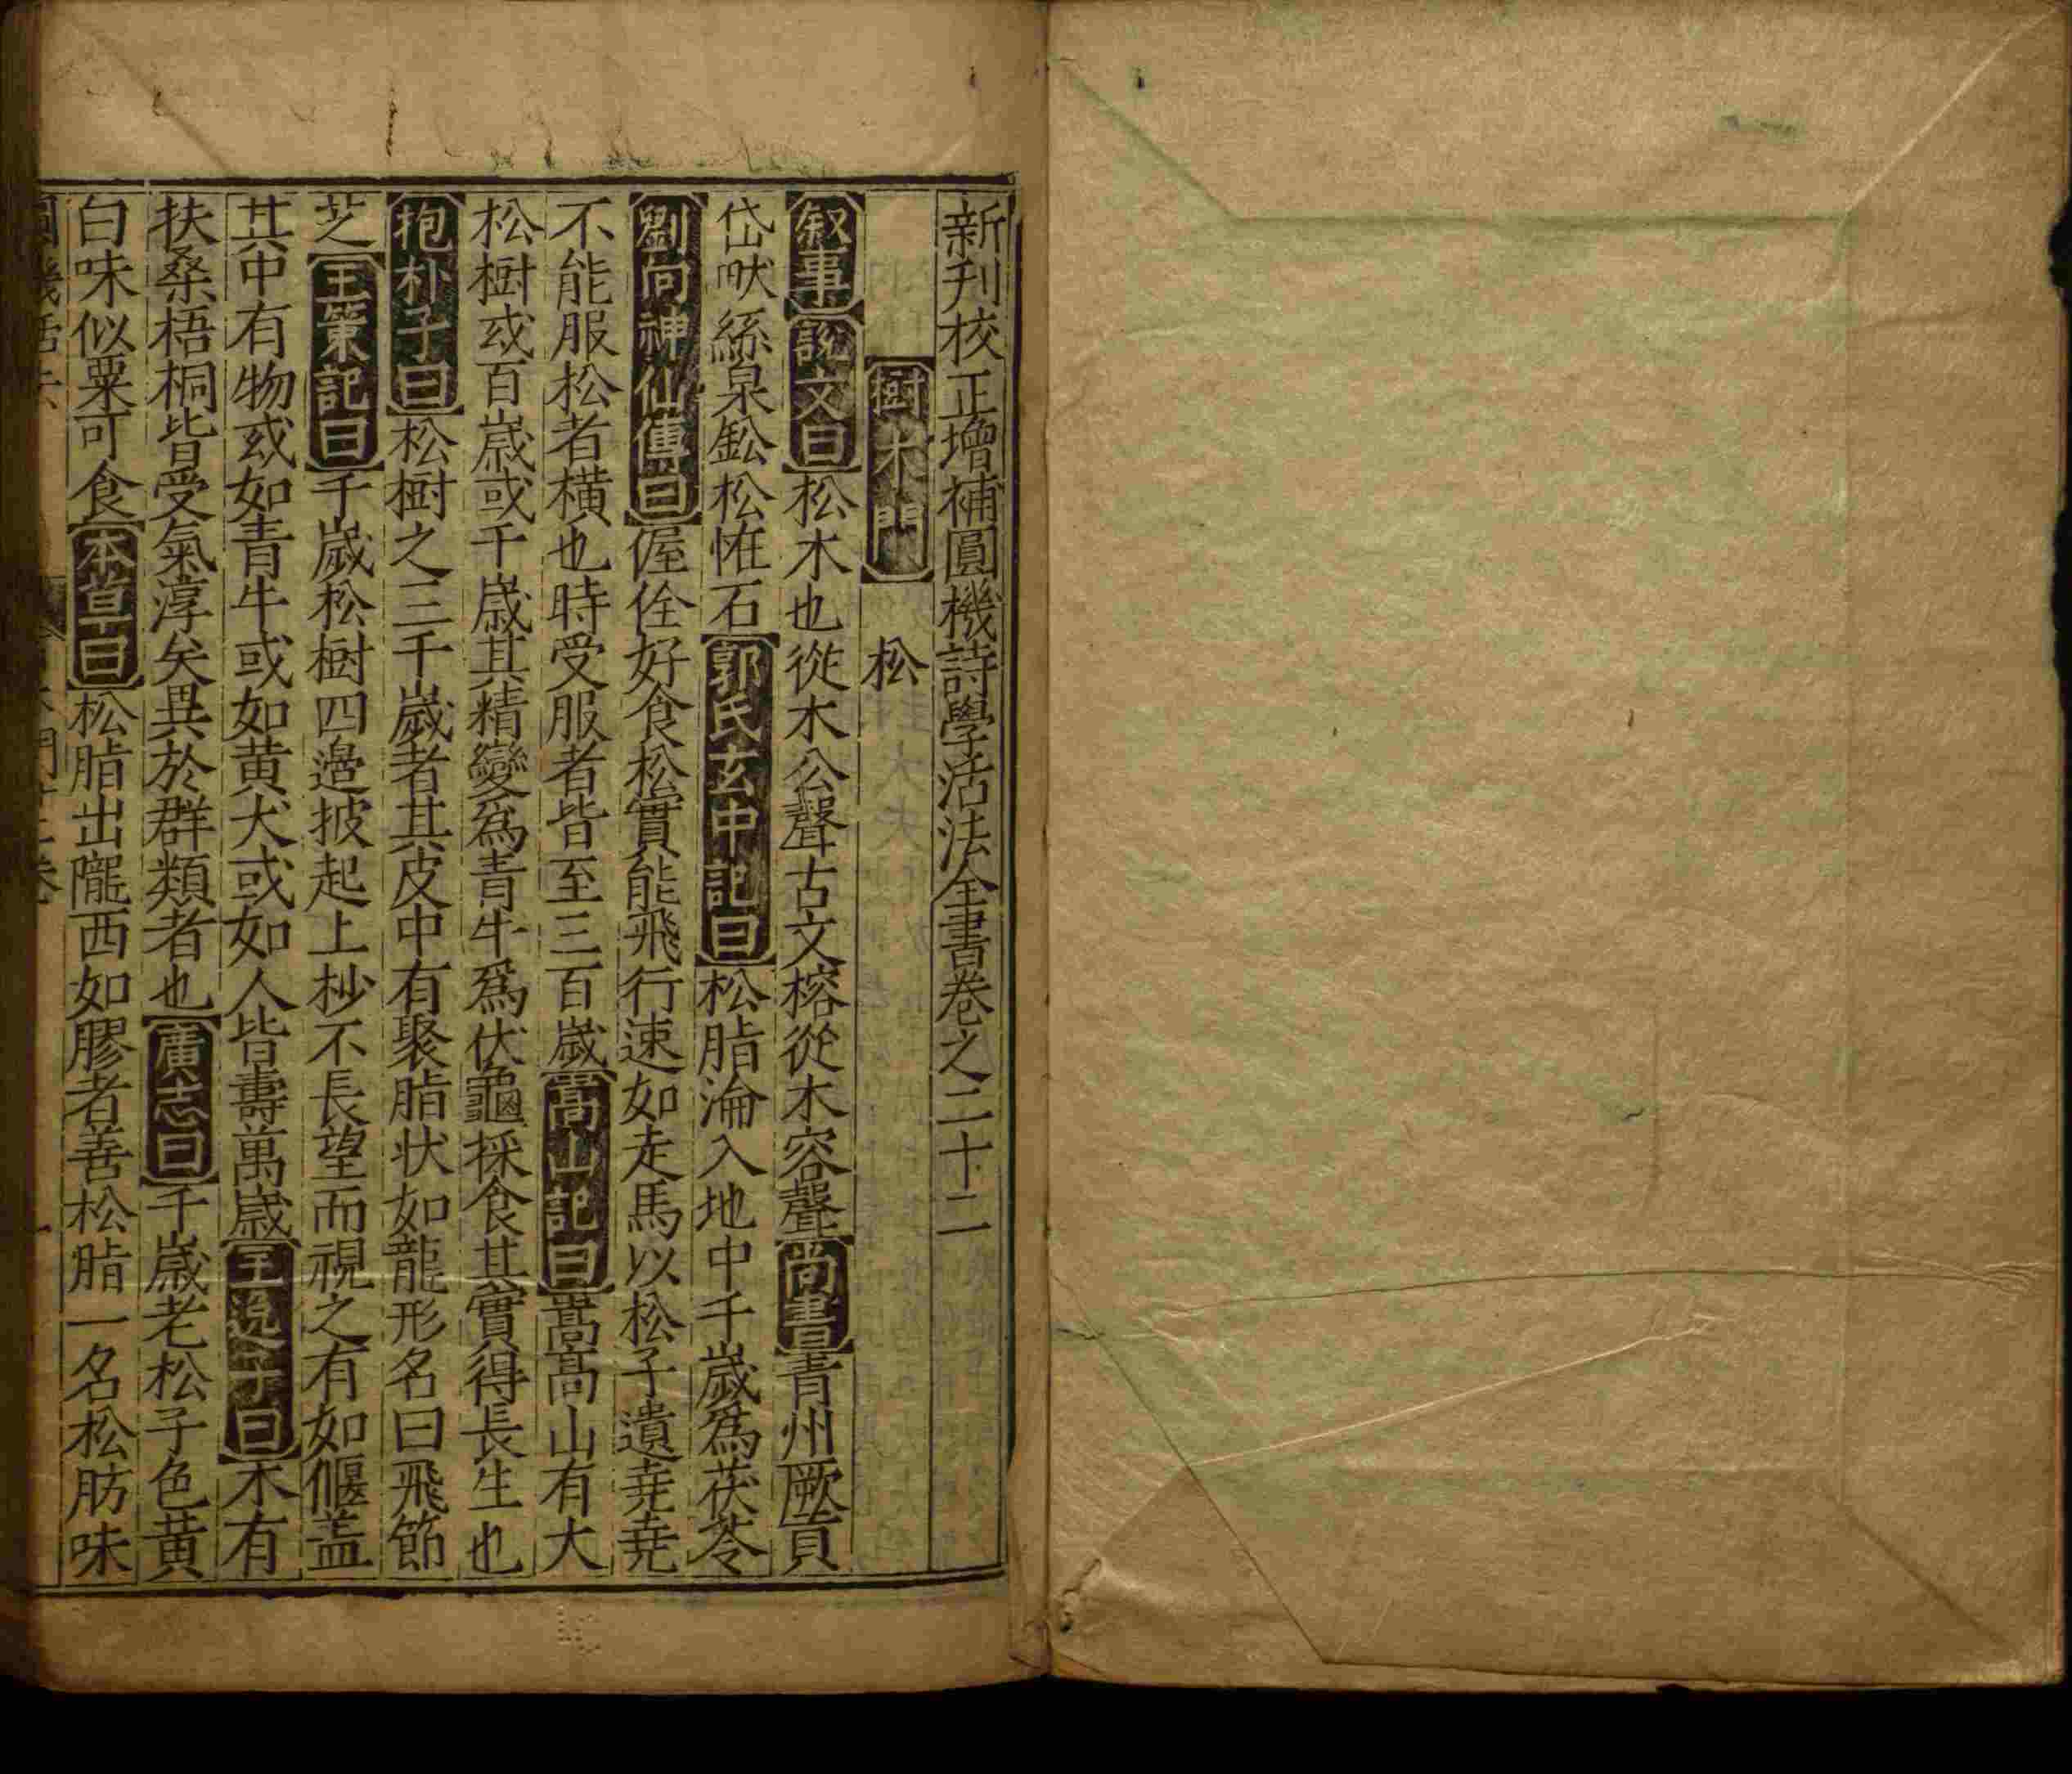 新刋校正增補圓機詩學活法全書卷之二十二
樹木門 松
叙事 說文曰松木也從木公聲古文榕從木容聲尚書曰青州厥貢
岱畎絲枲鈆松恠石郭氏玄中記曰松脂淪入地中千歲爲茯苓
劉向神仙傳曰偓佺好食松實能飛行速如走馬以松子遺堯堯
不能服松者橫也時受服者皆至三百歲嵩山記曰嵩高山有大
松樹或百歲或千歲其精變爲青牛爲伏龜採食其實得長生也
抱朴子曰松樹之三千歲者其皮中有聚脂状如龍形名曰飛節
芝王策記曰千歲松樹四邊披起上杪不長望而視之有如偃盖
其中有物或如青牛或如黄犬或如人皆壽萬歲王逸子曰木有
扶桑梧桐皆受氣淳矣異於群類者也廣志曰千歲老松子色黄
白味似粟可食本草曰松脂出隴西如膠者善松脂一名松肪味